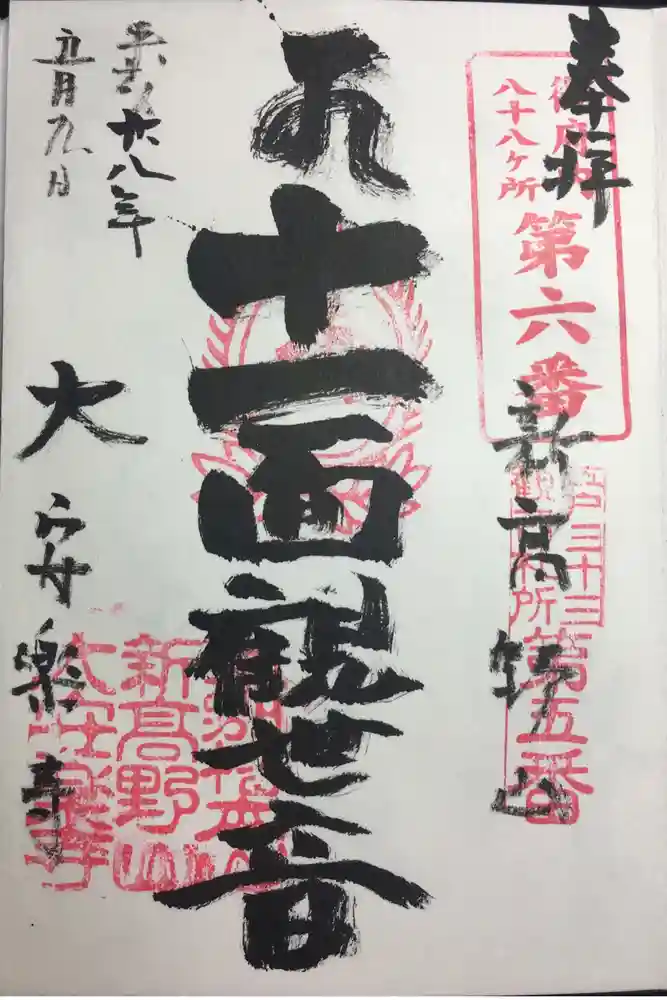 奉拝
御府内
八十八ヶ所
第六番
新高野山
江戸三十三
観音札所
第五番
十一面観世音
平成廿八年
五月九日
大安楽寺
新高野山
大安楽寺